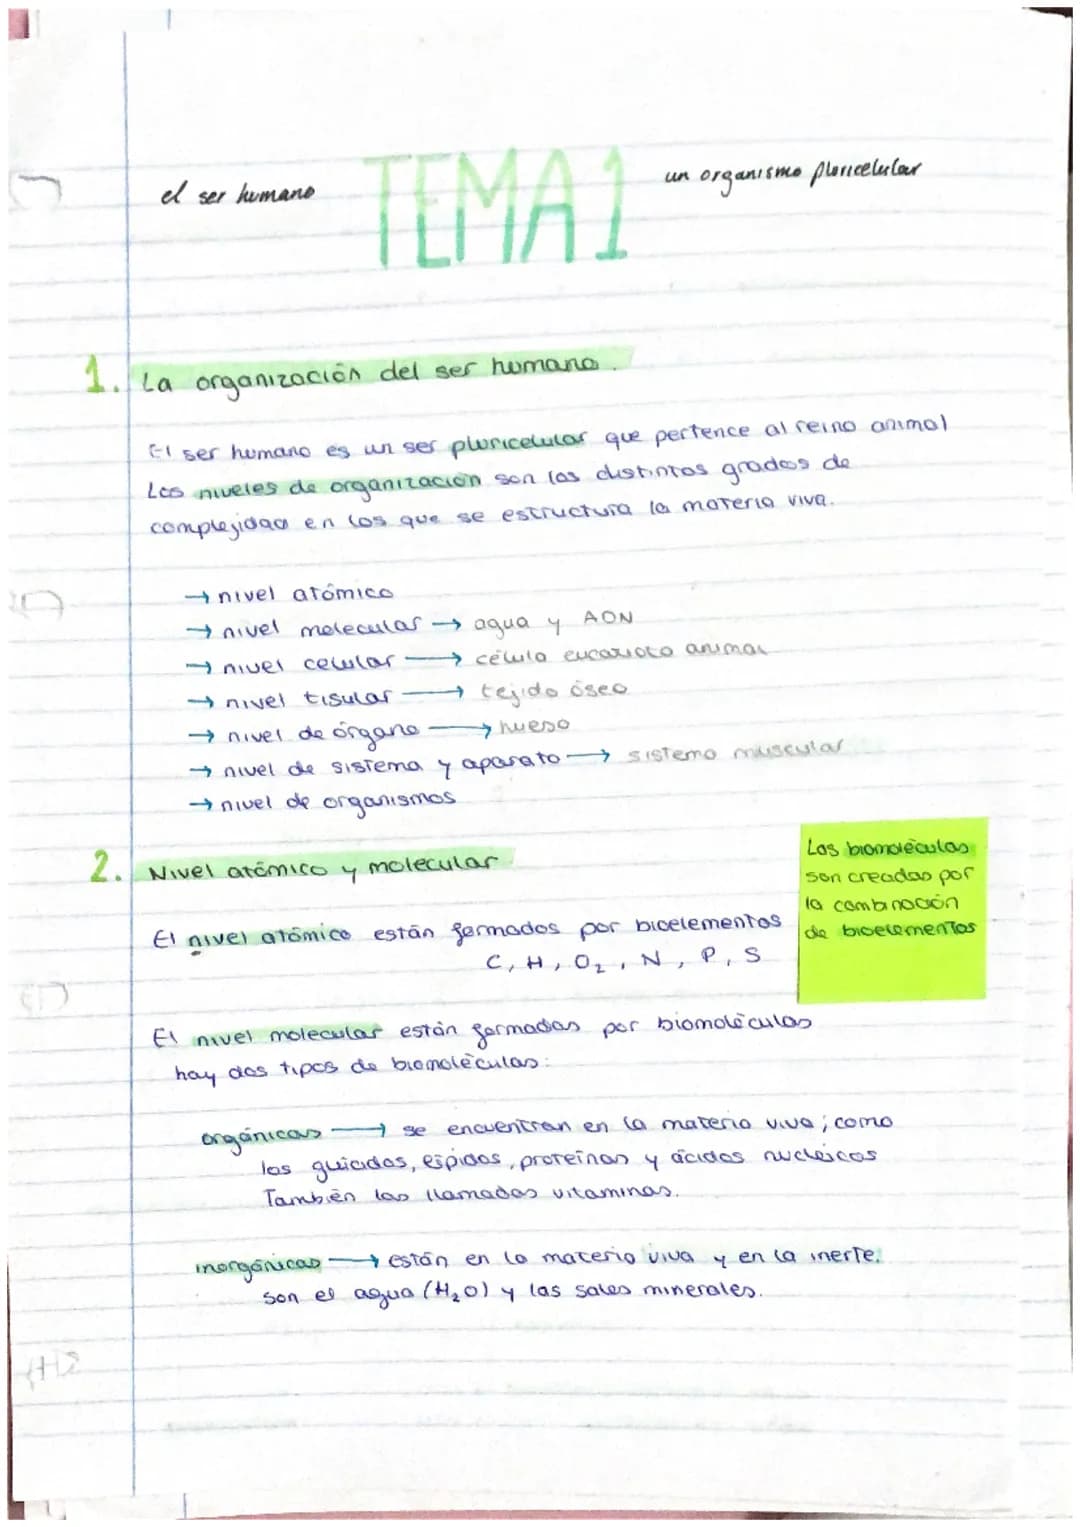 el ser humano TEMA 1 un organismo pluricelular
1. La organización del ser humano.
El ser humano es un ser pluricelular que pertence al reino animal
Los niveles de organización son los distintos grados de
complejidad en los que se estructura la materia viva.
→ nivel atómico
→ nivel molecular → agua y ADN
→ nivel celular → célula eucariota animal
→ nivel tisular → tejido óseo
→ nivel de órgano → hueso
→ nivel de sistema y aparato → sistema muscular
→ nivel de organismos
2. Nivel atómico y molecular
Las biomoléculas
son creadas por
la combinación
de bioelementos
El nivel atómico están formados por bioelementos
C, H, O₂, N, P, S
El nivel molecular están formadas por biomoléculas
hay dos tipos de biomoléculas:
orgánicas → se encuentran en la materia viva; como
los glúcidos, lípidos, proteínas y ácidos nucleicos
También las llamadas vitaminas.
inorgánicas → están en la materia viva y en la inerte.
son el agua (H₂O) y las sales minerales.